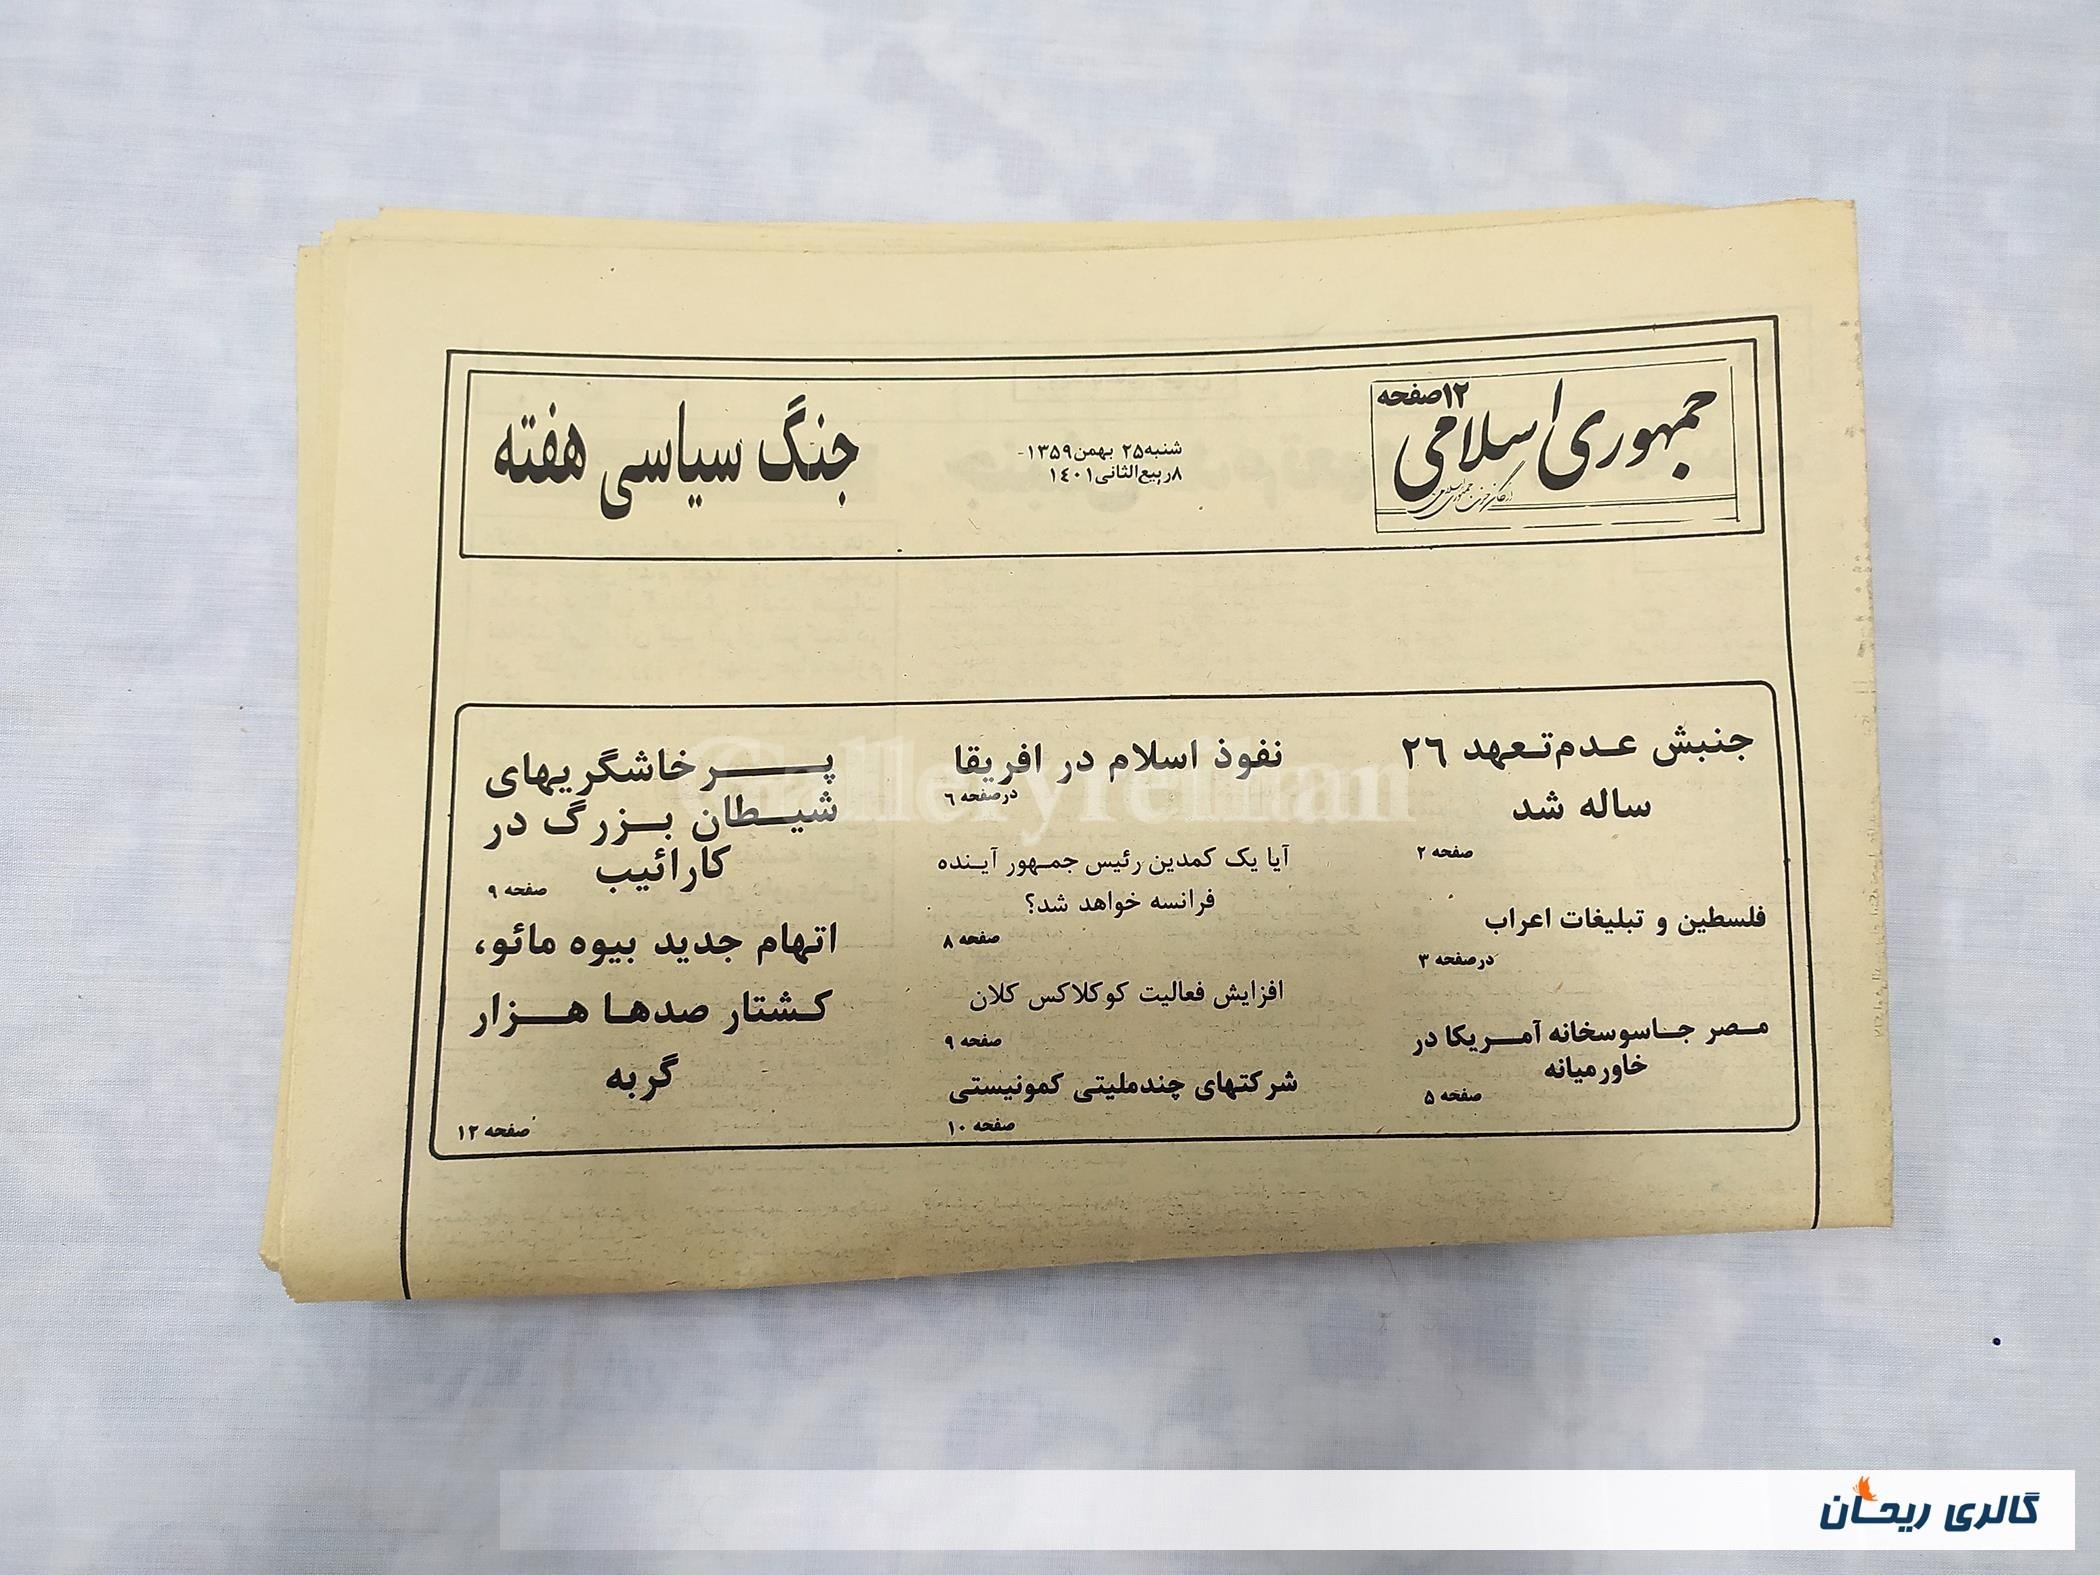 ۱۲صفحه
جمهوری اسلامی
ارگان حزب جمهوری اسلامی
شنبه۲۵ بهمن۱۳۵۹-
۸ربیع‌الثانی۱۴۰۱
جنگ سیاسی هفته
جنبش عدم‌تعهد ۲۶
ساله شد
صفحه ۲
فلسطین و تبلیغات اعراب
درصفحه ۳
مصر جاسوسخانه آمریکا در
خاورمیانه
صفحه ۵
نفوذ اسلام در افریقا
درصفحه ۶
آیا یک کمدین رئیس جمهور آینده
فرانسه خواهد شد؟
صفحه ۸
افزایش فعالیت کوکلاکس کلان
صفحه ۹
شرکتهای چندملیتی کمونیستی
صفحه ۱۰
پرخاشگریهای
شیطان بزرگ در
کارائیب
صفحه ۹
اتهام جدید بیوه مائو،
کشتار صدها هزار
گربه
صفحه ۱۲
Galleryreihan
گالری ریحان